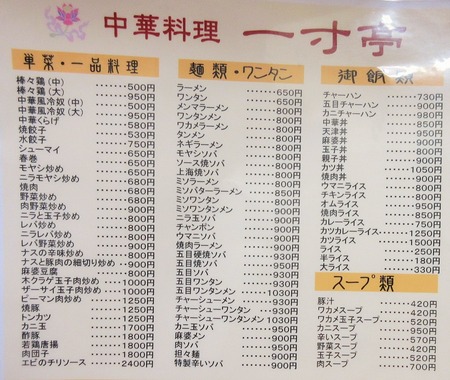 中華料理 一寸亭
単菜・一品料理
棒々鶏(中)・・・・・500円
棒々鶏(大)・・・・・950円
中華風冷奴(中)・・・500円
中華風冷奴(大)・・・950円
中華くらげ・・・・・580円
焼餃子・・・・・530円
水餃子・・・・・750円
シューマイ・・・・・650円
春巻・・・・・650円
モヤシ炒め・・・・・680円
ニラモヤシ炒め・・・680円
焼肉・・・・・900円
野菜炒め・・・・・680円
肉野菜炒め・・・・・900円
ニラと玉子炒め・・・900円
レバ炒め・・・・・900円
ニラレバ炒め・・・・900円
レバ野菜炒め・・・・900円
ナスの辛味炒め・・・900円
ナスと豚肉の細切り炒め・・900円
麻婆豆腐・・・・・800円
木クラゲ玉子肉炒め・・1000円
ザーサイ玉子肉炒め・・1000円
ピーマン肉炒め・・・1000円
焼豚・・・・・1000円
トンカツ・・・・・1000円
カニ玉・・・・・1700円
酢豚・・・・・1800円
若鶏唐揚・・・・・1800円
肉団子・・・・・1800円
エビのチリソース・・・2400円
麺類・ワンタン
ラーメン・・・・・650円
ワンタン・・・・・650円
メンマラーメン・・・900円
ワンタンメン・・・・900円
ワカメラーメン・・・900円
タンメン・・・・・800円
ネギラーメン・・・・900円
モヤシソバ・・・・・900円
ソース焼ソバ・・・・800円
上海焼ソバ・・・・・900円
ミソラーメン・・・・800円
ミソバターラーメン・・850円
ミソワンタン・・・・800円
ミソワンタンメン・・・930円
ニラ玉ソバ・・・・・900円
チャンポン・・・・・900円
ウマニソバ・・・・・900円
焼肉ラーメン・・・・900円
五目硬焼ソバ・・・・930円
五目焼ソバ・・・・・930円
五目ソバ・・・・・930円
五目ワンタン・・・・930円
五目ワンタンメン・・・930円
チャーシューメン・・・930円
チャーシューワンタン・・930円
チャーシューワンタンメン 1030円
カニ玉ソバ・・・・・900円
麻婆メン・・・・・900円
肉ソバ・・・・・900円
担々麺・・・・・900円
特製辛いソバ・・・・900円
御飯類
チャーハン・・・・・730円
五目チャーハン・・・900円
カニチャーハン・・・980円
中華丼・・・・・850円
天津丼・・・・・950円
麻婆丼・・・・・900円
玉子丼・・・・・800円
親子丼・・・・・900円
カツ丼・・・・・1050円
焼肉丼・・・・・900円
ウマニライス・・・・900円
チキンライス・・・・800円
オムライス・・・・・950円
焼肉ライス・・・・・950円
カレーライス・・・・750円
カツカレーライス・・・1250円
カツライス・・・・・1500円
ライス・・・・・250円
半ライス・・・・・180円
大ライス・・・・・330円
スープ類
豚汁・・・・・420円
ワカメスープ・・・・520円
ワカメ玉子スープ・・・520円
カニスープ・・・・・950円
辛いスープ・・・・・570円
野菜スープ・・・・・450円
玉子スープ・・・・・520円
肉スープ・・・・・700円